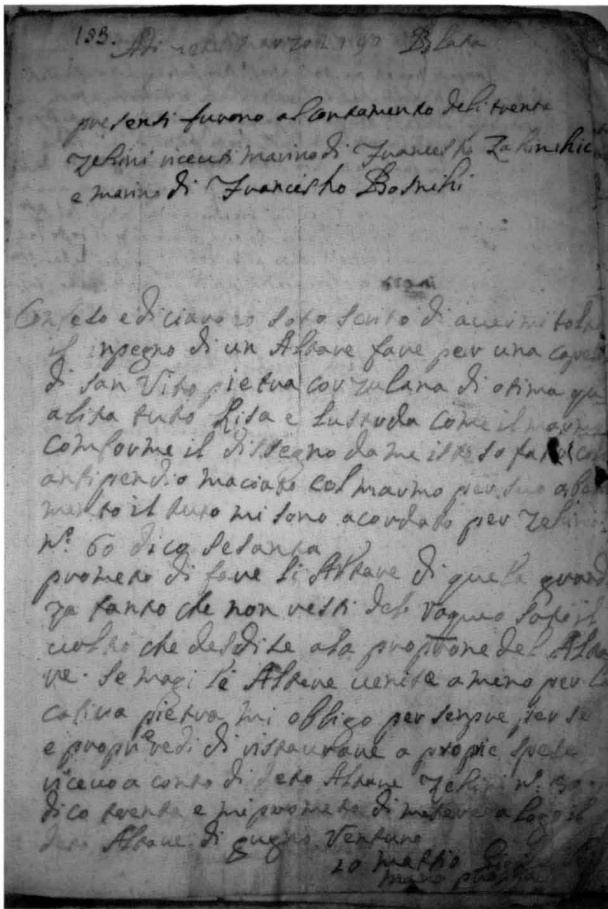 133. Adi Marzo 1797 Blata
presenti furono al contamento deli trenta
zehini riceuti marino di Francesko Zaknihic
e marino di Francesko Bosnihi
Confeso e diciaro io soto scrito di avermi tolto
il inpegno di un Altare fare per una capela
di San Vito pietra corzulana di otima qu
alita tuto lisa e lustrada come il marmo
comforme il dissegno da me isteso fato con
antipendio maciato col marmo per suo
mento il tuto mi sono acordato per zehini
No. 60 dico sesanta
prometo di fare li Altare di quela grand
za tanto che non resti del vaquo soto il
volto che desdise ala proprione del Alta
re. Se magi le Altare venise a meno per la
cativa pietra mi obligo per senpre per se
e proprie redi di ristaurare a proprie spese
riceuo a conto di deto Altare zehini No. 30
dico trenta e mi prometo di metere a logo il
deto Altare di gugno Venturo
io mattio
mano propria